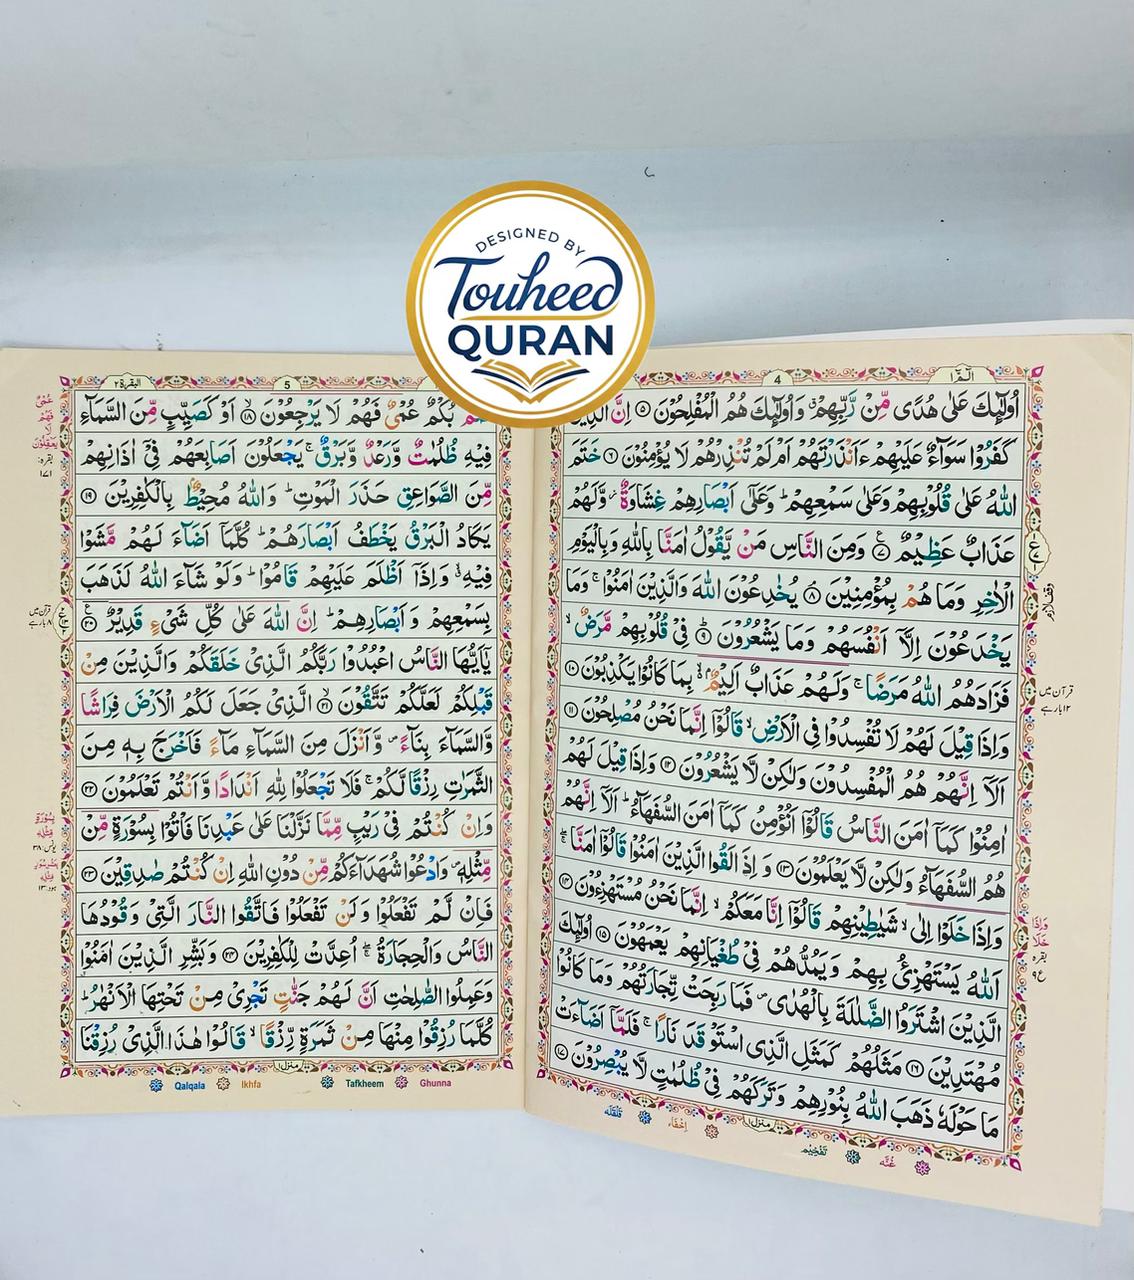 DESIGNED BY
Touheed
QURAN
الٓمّٓ ۱
4
اُولٰٓئِكَ عَلٰى هُدًى مِّنْ رَّبِّهِمْ ۙ وَاُولٰٓئِكَ هُمُ الْمُفْلِحُوْنَ ۝۵ اِنَّ
كَفَرُوْا سَوَآءٌ عَلَيْهِمْ ءَاَنْذَرْتَهُمْ اَمْ لَمْ تُنْذِرْهُمْ لَا يُؤْمِنُوْنَ ۝۶ خَتَمَ
اللّٰهُ عَلٰى قُلُوْبِهِمْ وَعَلٰى سَمْعِهِمْ ؕ وَعَلٰٓى اَبْصَارِهِمْ غِشَاوَةٌ ز وَّلَهُمْ
عَذَابٌ عَظِيْمٌ ۝۷ وَمِنَ النَّاسِ مَنْ يَّقُوْلُ اٰمَنَّا بِاللّٰهِ وَبِالْيَوْمِ
الْاٰخِرِ وَمَا هُمْ بِمُؤْمِنِيْنَ ۝۸ يُخٰدِعُوْنَ اللّٰهَ وَالَّذِيْنَ اٰمَنُوْا ۚ وَمَا
يَخْدَعُوْنَ اِلَّآ اَنْفُسَهُمْ وَمَا يَشْعُرُوْنَ ۝۹ فِيْ قُلُوْبِهِمْ مَّرَضٌ ۙ
فَزَادَهُمُ اللّٰهُ مَرَضًا ۚ وَلَهُمْ عَذَابٌ اَلِيْمٌۢ ۙ بِمَا كَانُوْا يَكْذِبُوْنَ ۝۱۰
وَاِذَا قِيْلَ لَهُمْ لَا تُفْسِدُوْا فِي الْاَرْضِ ۙ قَالُوْٓا اِنَّمَا نَحْنُ مُصْلِحُوْنَ ۝۱۱
اَلَآ اِنَّهُمْ هُمُ الْمُفْسِدُوْنَ وَلٰكِنْ لَّا يَشْعُرُوْنَ ۝۱۲ وَاِذَا قِيْلَ لَهُمْ
اٰمِنُوْا كَمَآ اٰمَنَ النَّاسُ قَالُوْٓا اَنُؤْمِنُ كَمَآ اٰمَنَ السُّفَهَآءُ ؕ اَلَآ اِنَّهُمْ
هُمُ السُّفَهَآءُ وَلٰكِنْ لَّا يَعْلَمُوْنَ ۝۱۳ وَاِذَا لَقُوا الَّذِيْنَ اٰمَنُوْا قَالُوْٓا اٰمَنَّا ۚۖ
وَاِذَا خَلَوْا اِلٰى شَيٰطِيْنِهِمْ ۙ قَالُوْٓا اِنَّا مَعَكُمْ ۙ اِنَّمَا نَحْنُ مُسْتَهْزِءُوْنَ ۝۱۴
اَللّٰهُ يَسْتَهْزِئُ بِهِمْ وَيَمُدُّهُمْ فِيْ طُغْيَانِهِمْ يَعْمَهُوْنَ ۝۱۵ اُولٰٓئِكَ
الَّذِيْنَ اشْتَرَوُا الضَّلٰلَةَ بِالْهُدٰى ص فَمَا رَبِحَتْ تِّجَارَتُهُمْ وَمَا كَانُوْا
مُهْتَدِيْنَ ۝۱۶ مَثَلُهُمْ كَمَثَلِ الَّذِى اسْتَوْقَدَ نَارًا ۚ فَلَمَّآ اَضَآءَتْ
مَا حَوْلَهٗ ذَهَبَ اللّٰهُ بِنُوْرِهِمْ وَتَرَكَهُمْ فِيْ ظُلُمٰتٍ لَّا يُبْصِرُوْنَ ۝۱۷
منزل۱
غُنَّه تَفْخِيْم اِخْفَاء قَلْقَلَه
وقف لازم
قرآن میں
۱۲ بار ہے
وَاِذَا
خَلَا
بقره
ع ۹
5
البقرة ۲
بُكْمٌ عُمْيٌ فَهُمْ لَا يَرْجِعُوْنَ ۝۱۸ اَوْ كَصَيِّبٍ مِّنَ السَّمَآءِ
فِيْهِ ظُلُمٰتٌ وَّرَعْدٌ وَّبَرْقٌ ۚ يَجْعَلُوْنَ اَصَابِعَهُمْ فِيْٓ اٰذَانِهِمْ
مِّنَ الصَّوَاعِقِ حَذَرَ الْمَوْتِ ؕ وَاللّٰهُ مُحِيْطٌۢ بِالْكٰفِرِيْنَ ۝۱۹
يَكَادُ الْبَرْقُ يَخْطَفُ اَبْصَارَهُمْ ؕ كُلَّمَآ اَضَآءَ لَهُمْ مَّشَوْا
فِيْهِ ۙ وَاِذَآ اَظْلَمَ عَلَيْهِمْ قَامُوْا ؕ وَلَوْ شَآءَ اللّٰهُ لَذَهَبَ
بِسَمْعِهِمْ وَاَبْصَارِهِمْ ؕ اِنَّ اللّٰهَ عَلٰى كُلِّ شَيْءٍ قَدِيْرٌ ۝۲۰
يٰٓاَيُّهَا النَّاسُ اعْبُدُوْا رَبَّكُمُ الَّذِيْ خَلَقَكُمْ وَالَّذِيْنَ مِنْ
قَبْلِكُمْ لَعَلَّكُمْ تَتَّقُوْنَ ۝۲۱ الَّذِيْ جَعَلَ لَكُمُ الْاَرْضَ فِرَاشًا
وَّالسَّمَآءَ بِنَآءً ص وَّاَنْزَلَ مِنَ السَّمَآءِ مَآءً فَاَخْرَجَ بِهٖ مِنَ
الثَّمَرٰتِ رِزْقًا لَّكُمْ ۚ فَلَا تَجْعَلُوْا لِلّٰهِ اَنْدَادًا وَّاَنْتُمْ تَعْلَمُوْنَ ۝۲۲
وَاِنْ كُنْتُمْ فِيْ رَيْبٍ مِّمَّا نَزَّلْنَا عَلٰى عَبْدِنَا فَاْتُوْا بِسُوْرَةٍ مِّنْ
مِّثْلِهٖ ص وَادْعُوْا شُهَدَآءَكُمْ مِّنْ دُوْنِ اللّٰهِ اِنْ كُنْتُمْ صٰدِقِيْنَ ۝۲۳
فَاِنْ لَّمْ تَفْعَلُوْا وَلَنْ تَفْعَلُوْا فَاتَّقُوا النَّارَ الَّتِيْ وَقُوْدُهَا
النَّاسُ وَالْحِجَارَةُ ۚۖ اُعِدَّتْ لِلْكٰفِرِيْنَ ۝۲۴ وَبَشِّرِ الَّذِيْنَ اٰمَنُوْا
وَعَمِلُوا الصّٰلِحٰتِ اَنَّ لَهُمْ جَنّٰتٍ تَجْرِيْ مِنْ تَحْتِهَا الْاَنْهٰرُ ؕ
كُلَّمَا رُزِقُوْا مِنْهَا مِنْ ثَمَرَةٍ رِّزْقًا ۙ قَالُوْا هٰذَا الَّذِيْ رُزِقْنَا
منزل۱
Qalqala Ikhfa Tafkheem Ghunna
بقره:
۱۷۱
قرآن میں
۸ بار ہے
بِسُوْرَةٍ
مِّثْلِهٖ
یونس:۳۸
هود:۱۳